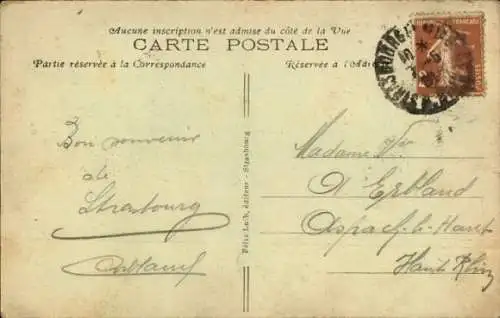 Aucune inscription n'est admise du côté de la Vue
CARTE POSTALE
Partie réservée à la Correspondance
Réservée à l'Adr
Bon souvenir
de
Strasbourg
Félix Luib, éditeur - Strasbourg
Madame Vve
Erbland
Aspach-le-Haut
Haut Rhin
POSTES